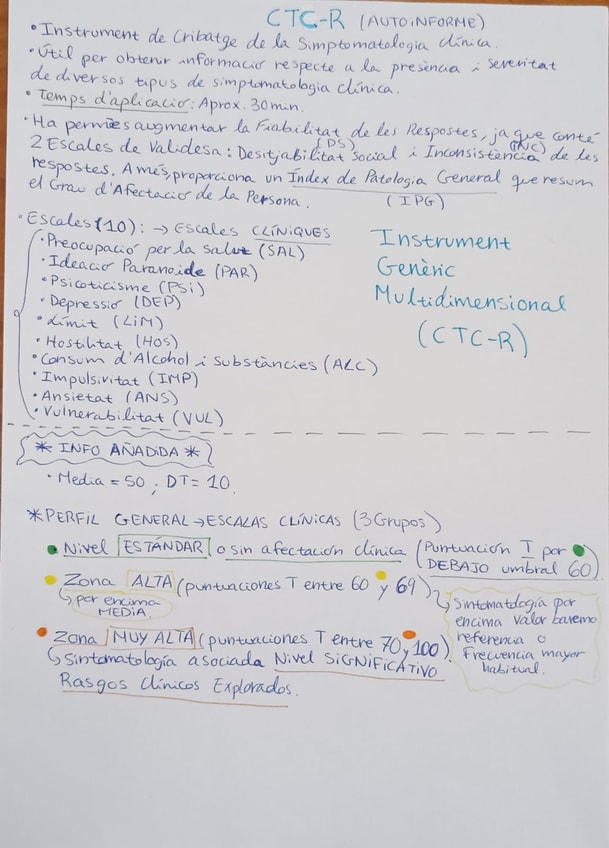 CTC-R (AUTOINFORME)
• Instrument de Cribatge de la Simptomatologia clínica.
• Útil per obtenir informació respecte a la presència i severitat
de diversos tipus de simptomatologia clínica.
• Temps d'aplicació: Aprox. 30min.
• Ha permès augmentar la Fiabilitat de les Respostes, ja que conté
2 Escales de Validesa: Desitjabilitat Social (DS) i Inconsistència (INC) de les
respostes. A més, proporciona un Índex de Patologia General que resum
el Grau d'Afectació de la Persona. (IPG)
• Escales (10): → Escales CLÍNIQUES
• Preocupació per la Salut (SAL)
• Ideació Paranoide (PAR)
• Psicoticisme (PSi)
• Depressió (DEP)
• Límit (LiM)
• Hostilitat (HOS)
• Consum d'Alcohol i Substàncies (ALC)
• Impulsivitat (IMP)
• Ansietat (ANS)
• Vulnerabilitat (VUL)
Instrument
Genèric
Multidimensional
(CTC-R)
* INFO AÑADIDA *
• Media = 50 ; DT = 10
*PERFIL GENERAL → ESCALAS CLÍNICAS (3 Grupos)
Nivel ESTÁNDAR o sin afectación clínica (Puntuación T por
DEBAJO umbral 60).
Zona ALTA (puntuaciones T entre 60 y 69)
↳ por encima
MEDIA.
↳ Sintomatología por
encima valor baremo
referencia o
Frecuencia mayor
habitual.
Zona MUY ALTA (puntuaciones T entre 70 y 100).
↳ Sintomatología asociada Nivel SiGNiFiCATIVO
Rasgos Clínicos Explorados.